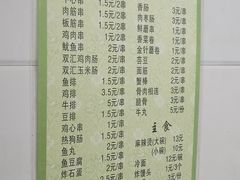 肉串 1.5元/2串
肉筋串 2元/串
板筋串 2元/串
鸡肉串 1.5元/串
鱿鱼串 2元/串
双汇鸡肉肠 2元/串
双汇玉米肠 2元/串
鱼排 3元/串
鸡排 3.5元/串
牛排 2元/串
豆排 1元/串
鸡心串 1.5元/串
热狗肠 1.5元/串
鱼丸 1.5元/串
鱼豆腐 2元/串
炸石蛋
香肠 3元/串
肉枣肠 3元/串
鲜蘑串 1元/串
香菜卷 1元/串
金针蘑卷 1元/串
芸豆 2元/串
面筋 2元/串
蟹棒 2元/串
骨肉相连 2元/串
脆骨 3元/串
牛丸 5元/份
主食
麻辣烫(大碗) 13元
(小碗) 10元
冷面 12元/碗
炸馒头 1元/3个